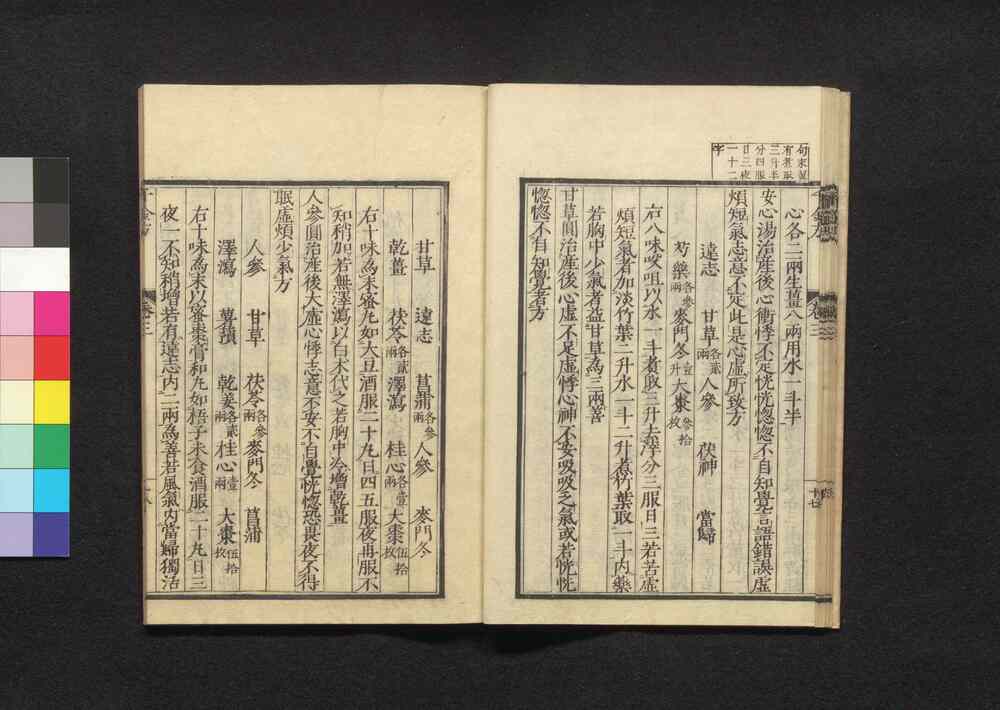 句宋
有煮取
三升半
分四服
日三夜
一十二
字
心各二兩生薑八兩用水一斗半
安心湯治產後心衝悸不定恍恍惚惚不自知覺言語錯誤虛
煩短氣志意不定此是心虛所致方
遠志 甘草各貳兩 人參 茯神 當歸
芍藥各參兩 麥門冬壹升 大棗參拾枚
右八味㕮咀以水一斗煮取三升去滓分三服日三若苦虛
煩短氣者加淡竹葉二升水一斗二升煮竹葉取一斗內藥
若胸中少氣者益甘草為三兩善
甘草圓治產後心虛不足虛悸心神不安吸吸乏氣或若恍恍
惚惚不自知覺者方
千金方 卷三 十七
甘草 遠志 菖蒲各參兩 人參 麥門冬
乾薑 茯苓各貳兩 澤瀉 桂心各壹兩 大棗伍拾枚
右十味為末蜜丸如大豆酒服二十丸日四五服夜再服不
知稍加若無澤瀉以白朮代之若胸中冷增乾薑
人參圓治產後大虛心悸志意不安不自覺恍惚恐畏夜不得
眠虛煩少氣方
人參 甘草 茯苓各參兩 麥門冬 菖蒲
澤瀉 薯蕷 乾姜各貳兩 桂心壹兩 大棗伍拾枚
右十味為末以蜜棗膏和丸如梧子未食酒服二十丸日三
夜一不知稍增若有遠志內二兩為善若風氣內當歸獨活
千金方 卷三